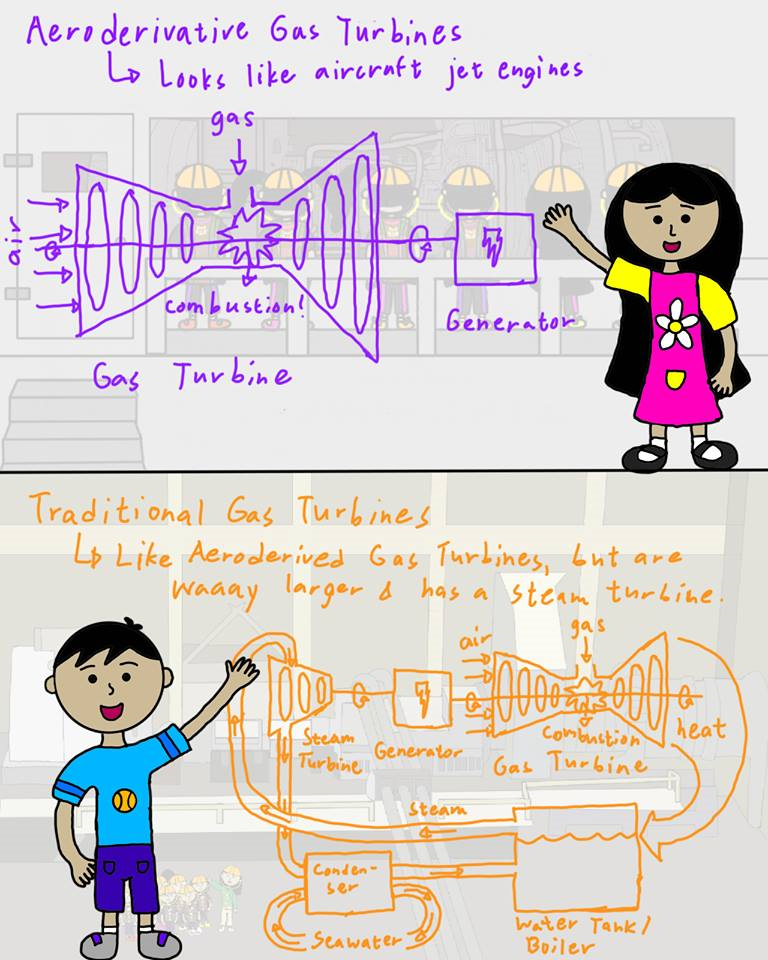 Aeroderivative Gas Turbines
↳ Looks like aircraft jet engines
gas
air
combustion!
Generator
Gas Turbine
Traditional Gas Turbines
↳ Like Aeroderived Gas Turbines, but are
waaay larger & has a steam turbine.
gas
air
Steam
Turbine
Generator
combustion
Gas Turbine
heat
steam
Conden-
ser
Seawater
Water Tank/
Boiler